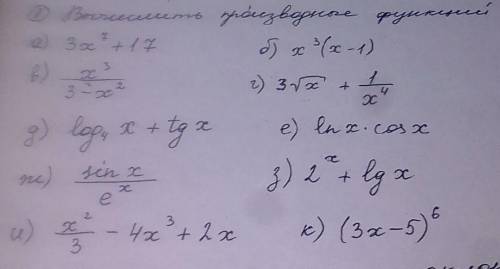 ① Вычислить производные функций
а) 3x⁷ + 17 б) x³(x-1)
в) x³/(3-x²) г) 3√x + 1/x⁴
д) log₄ x + tg x е) ln x · cos x
ж) sin x/eˣ з) 2ˣ + lg x
и) x²/3 - 4x³ + 2x к) (3x-5)⁶